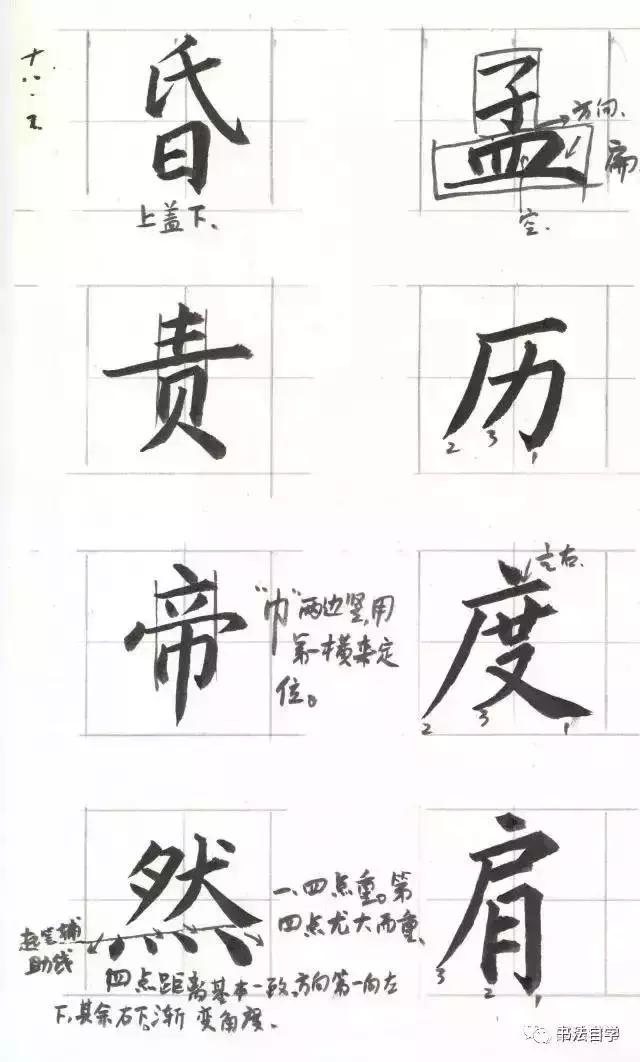 十八.
昏
上盖下.
孟
方向.
扁.
空.
责
历
2 3 1
帝
"巾"两边竖,用
第一横来定
位。
度
左右.
2 3 1
然
一、四点重。第
四点尤大而重.
起笔辅
助线
四点距离基本一致,方向第一向左
下,其余右下,渐变角度.
肩
3 2 1
书法自学